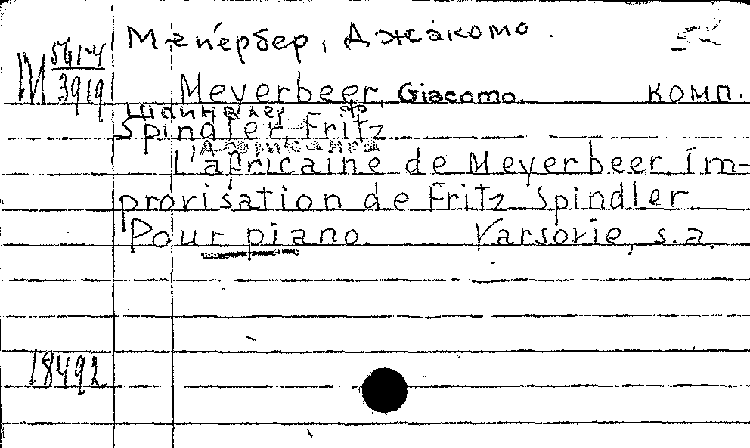 Мейербер, Джакомо.
М 561-4
3919
Meyerbeer, Giacomo комп.
Шпиндлер, Ф
Spindler, Fritz
L'africaine de Meyerbeer. Im-
provisation de Fritz Spindler.
Pour piano. Varsovie, s.a.
18492